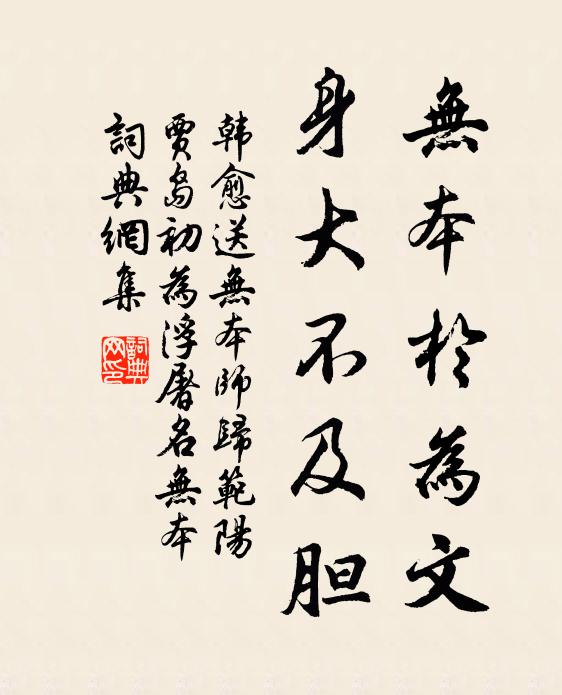 無本於為文
身大不及胆
韓愈送無本師歸範陽
賈島初為浮屠名無本
詞典網集
詞典
网印